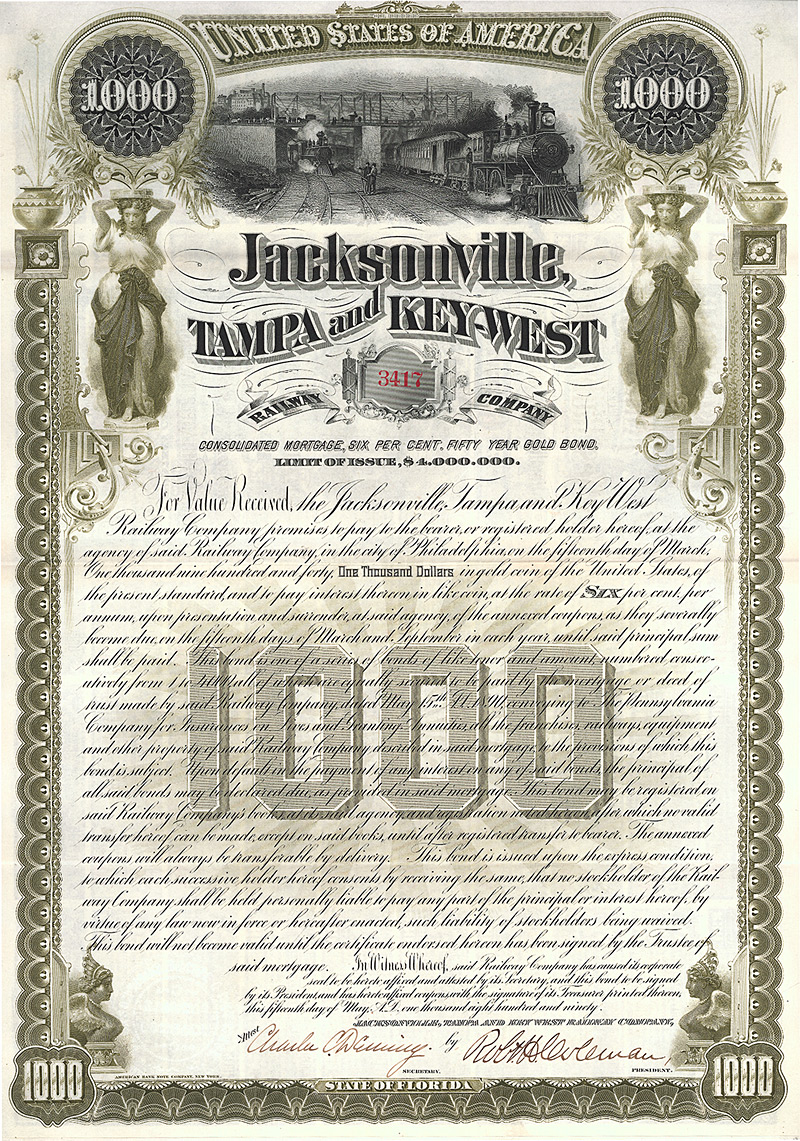 UNITED STATES OF AMERICA
1.000
1.000
Jacksonville,
TAMPA and KEY-WEST
3417
RAILWAY COMPANY
CONSOLIDATED MORTGAGE, SIX PER CENT. FIFTY YEAR GOLD BOND.
LIMIT OF ISSUE, $4.000.000.
For Value Received, the Jacksonville, Tampa, and Key West
Railway Company promises to pay to the bearer, or registered holder hereof, at the
agency of said Railway Company, in the city of Philadelphia, on the fifteenth day of March,
One thousand nine hundred and forty, One Thousand Dollars in gold coin of the United States, of
the present standard, and to pay interest thereon, in like coin, at the rate of SIX per cent. per
annum, upon presentation and surrender, at said agency, of the annexed coupons, as they severally
become due, on the fifteenth days of March and September in each year, until said principal sum
shall be paid. This bond is one of a series of bonds of like tenor and amount, numbered consec-
utively from 1 to 4000, all of which are equally secured to be paid by the mortgage or deed of
trust made by said Railway Company, dated May 15th A.D. 1890, conveying to The Pennsylvania
Company for Insurances on Lives and Granting Annuities, all the franchises, railways, equipment
and other property of said Railway Company described in said mortgage, to the provisions of which this
bond is subject. Upon default in the payment of any interest on any of said bonds, the principal of
all said bonds may be declared due, as provided in said mortgage. This bond may be registered on
said Railway Company's books at its said agency, and registration noted hereon, after which no valid
transfer hereof can be made, except on said books, until after registered transfer to bearer. The annexed
coupons will always be transferable by delivery. This bond is issued upon the express condition,
to which each successive holder hereof consents by receiving the same, that no stockholder of the Rail-
way Company shall be held personally liable to pay any part of the principal or interest hereof, by
virtue of any law now in force or hereafter enacted, such liability of stockholders being waived.
This bond will not become valid until the certificate endorsed hereon has been signed by the Trustee of
said mortgage. In Witness Whereof, said Railway Company has caused its corporate
seal to be hereto affixed and attested by its Secretary, and this bond to be signed
by its President, and has hereto affixed coupons with the signature of its Treasurer printed thereon,
this fifteenth day of May, A.D. one thousand eight hundred and ninety.
1000
JACKSONVILLE, TAMPA AND KEY WEST RAILWAY COMPANY,
Attest Charles C. Deming. by Robt H Coleman,
SECRETARY. PRESIDENT.
AMERICAN BANK NOTE COMPANY, NEW YORK.
1000 STATE OF FLORIDA 1000